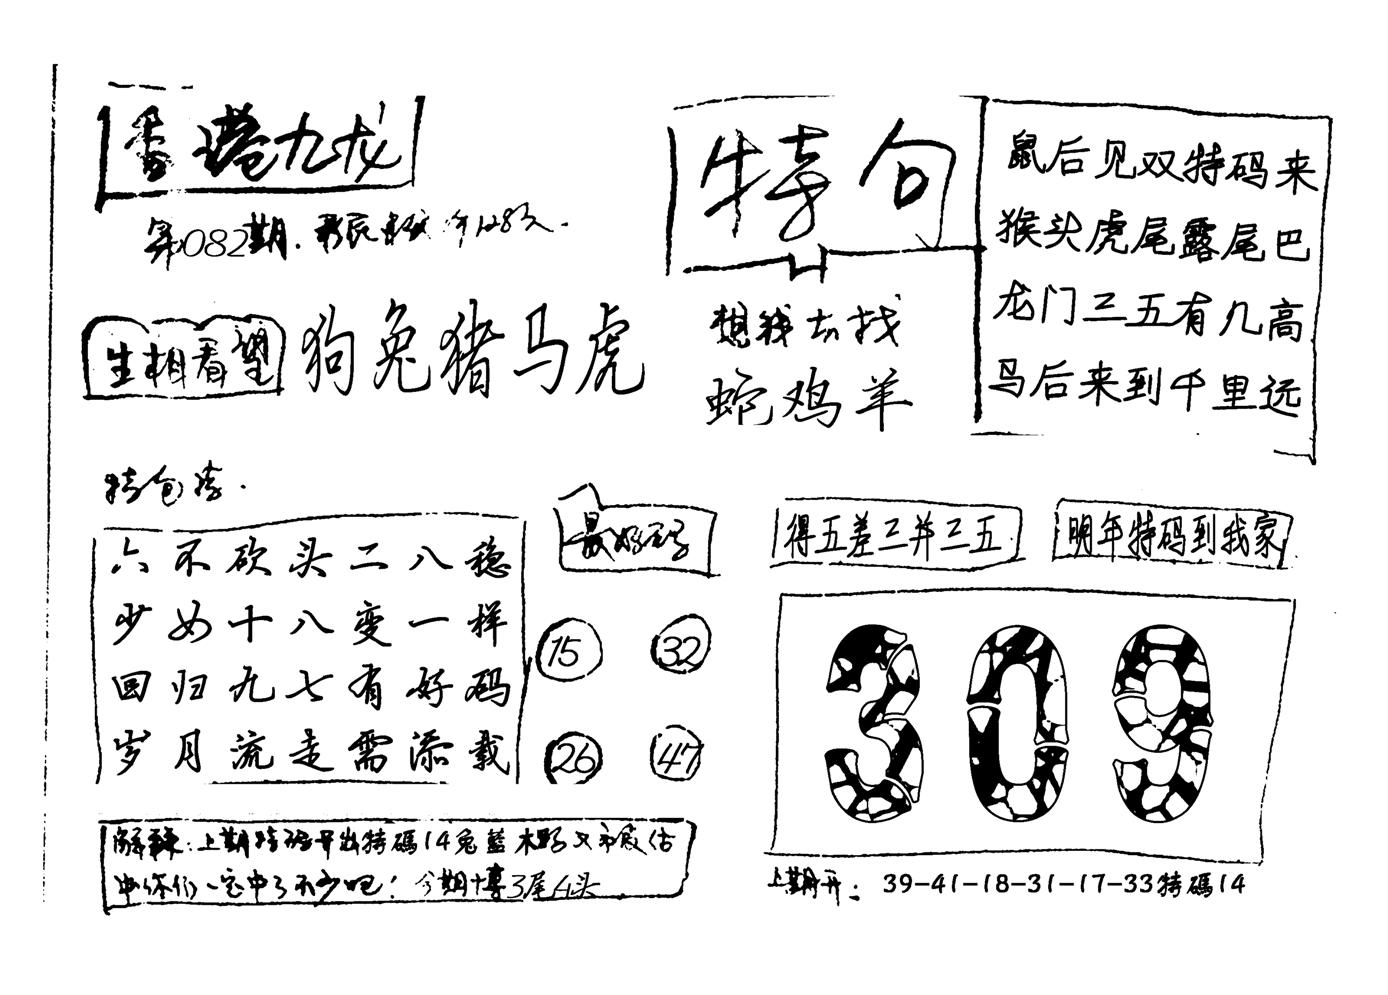 香港九龙
第082期.
生相看望
狗兔猪马虎
特句
想我去找
蛇鸡羊
鼠后见双特码来
猴头虎尾露尾巴
龙门三五有几高
马后来到千里远
特包
六不砍头二八稳
少女十八变一样
回归九七有好码
岁月流走需添载
最好
15 32
26 47
得五差三并三五
明年特码到我家
309
上期特码开出特碼14兔藍木野又
中你们一定中了不少吧！今期博3尾4头
上期开：39-41-18-31-17-33特碼14